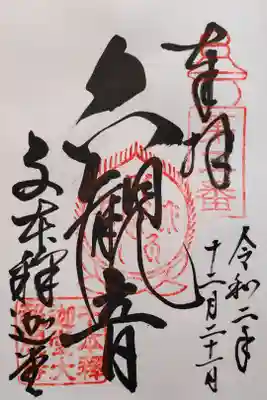 奉拝
令和二年
十二月二十一日
六観音
千本釋迦堂